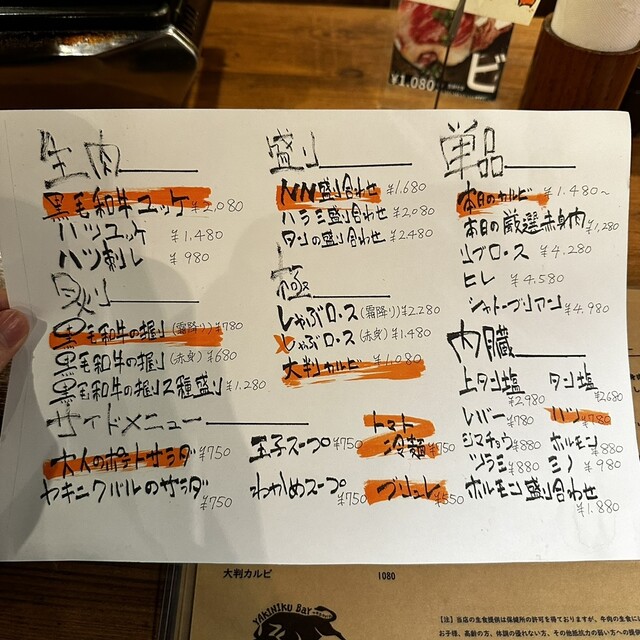 ¥1,080
ビ
生肉
黒毛和牛ユッケ ¥2,080
ハツユッケ ¥1,480
ハツ刺し ¥980
黒毛和牛の握り(霜降り)¥780
黒毛和牛の握り(赤身)¥680
黒毛和牛の握り2種盛り ¥1,280
盛り
NN盛り合わせ ¥1,680
ハラミ盛り合わせ ¥2,080
タンの盛り合わせ ¥2,480
極
しゃぶロース(霜降り)¥2,280
しゃぶロース(赤身)¥1,480
大判カルビ ¥1,080
単品
本日のカルビ ¥1,480~
本日の厳選赤身肉 ¥1,280
リブロース ¥4,280
ヒレ ¥4,580
シャトーブリアン ¥4,980
内臓
上タン塩 ¥2,980 タン塩 ¥2,680
レバー ¥780 ハツ ¥780
シマチョウ ¥880 ホルモン ¥880
ツラミ ¥880 ミノ ¥980
ホルモン盛り合わせ ¥1,880
サイドメニュー
大人のポテトサラダ ¥750
ヤキニクバルのサラダ ¥750
玉子スープ ¥750
わかめスープ ¥750
トマト
冷麺 ¥750
ブリュレ ¥550
大判カルビ 1080
YAKINIKU BAR
【注】当店の生食提供は保健所の許可を得ておりますが、牛肉の生食に
お子様、高齢の方、体調の優れない方、その他抵抗力の弱い方への提